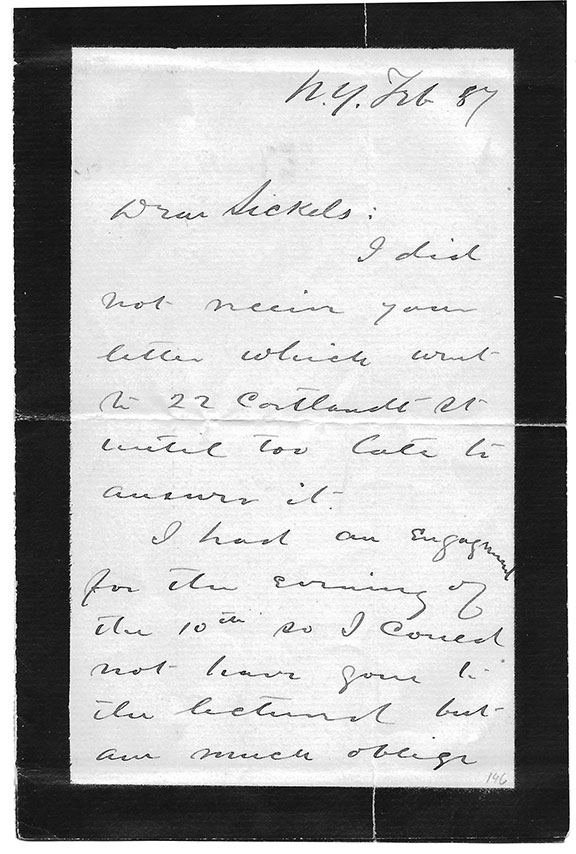 N.Y. Feb 87
Dear Sickels:
I did
not receive your
letter which went
to 22 Cortlandt St
until too late to
answer it.
I had an Engagement
for the Evening of
the 10th so I could
not have gone to
the lecture but
am much oblige
146